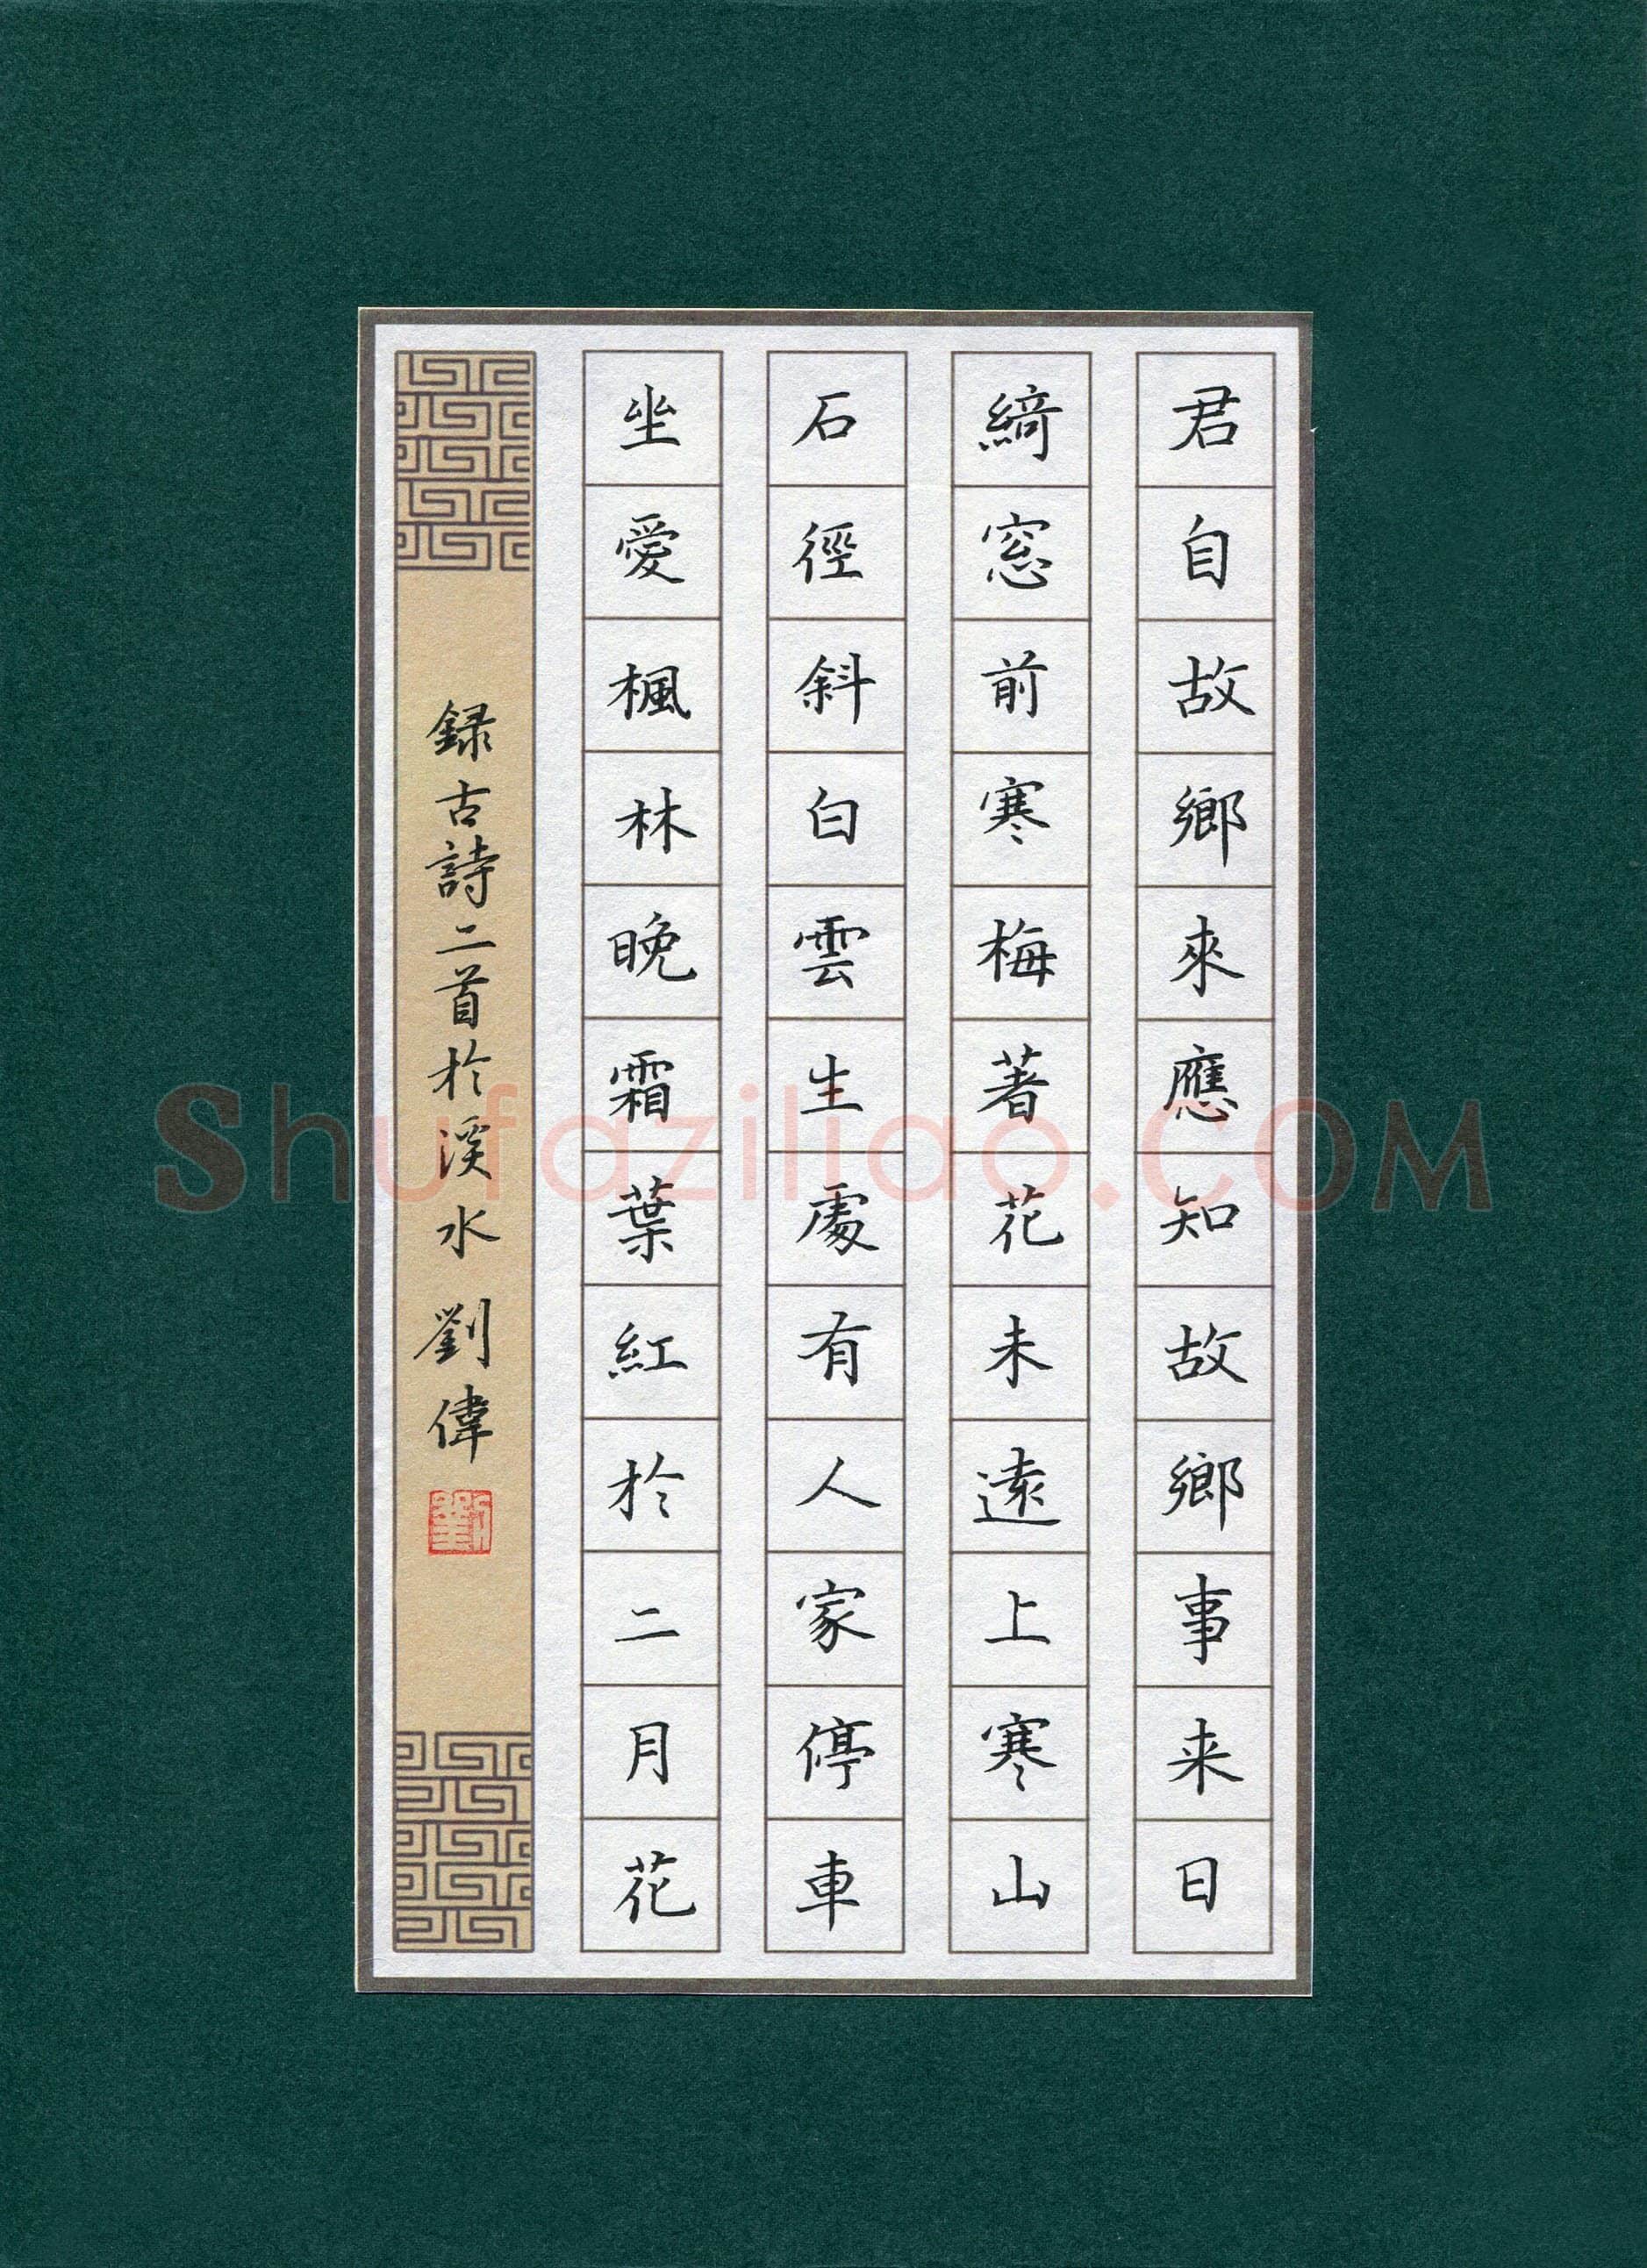 君自故鄉來應知故鄉事来日
綺窓前寒梅著花未遠上寒山
石徑斜白雲生處有人家停車
坐愛楓林晚霜葉紅於二月花
録古詩二首於溪水劉偉
劉
Shufaziliao.COM